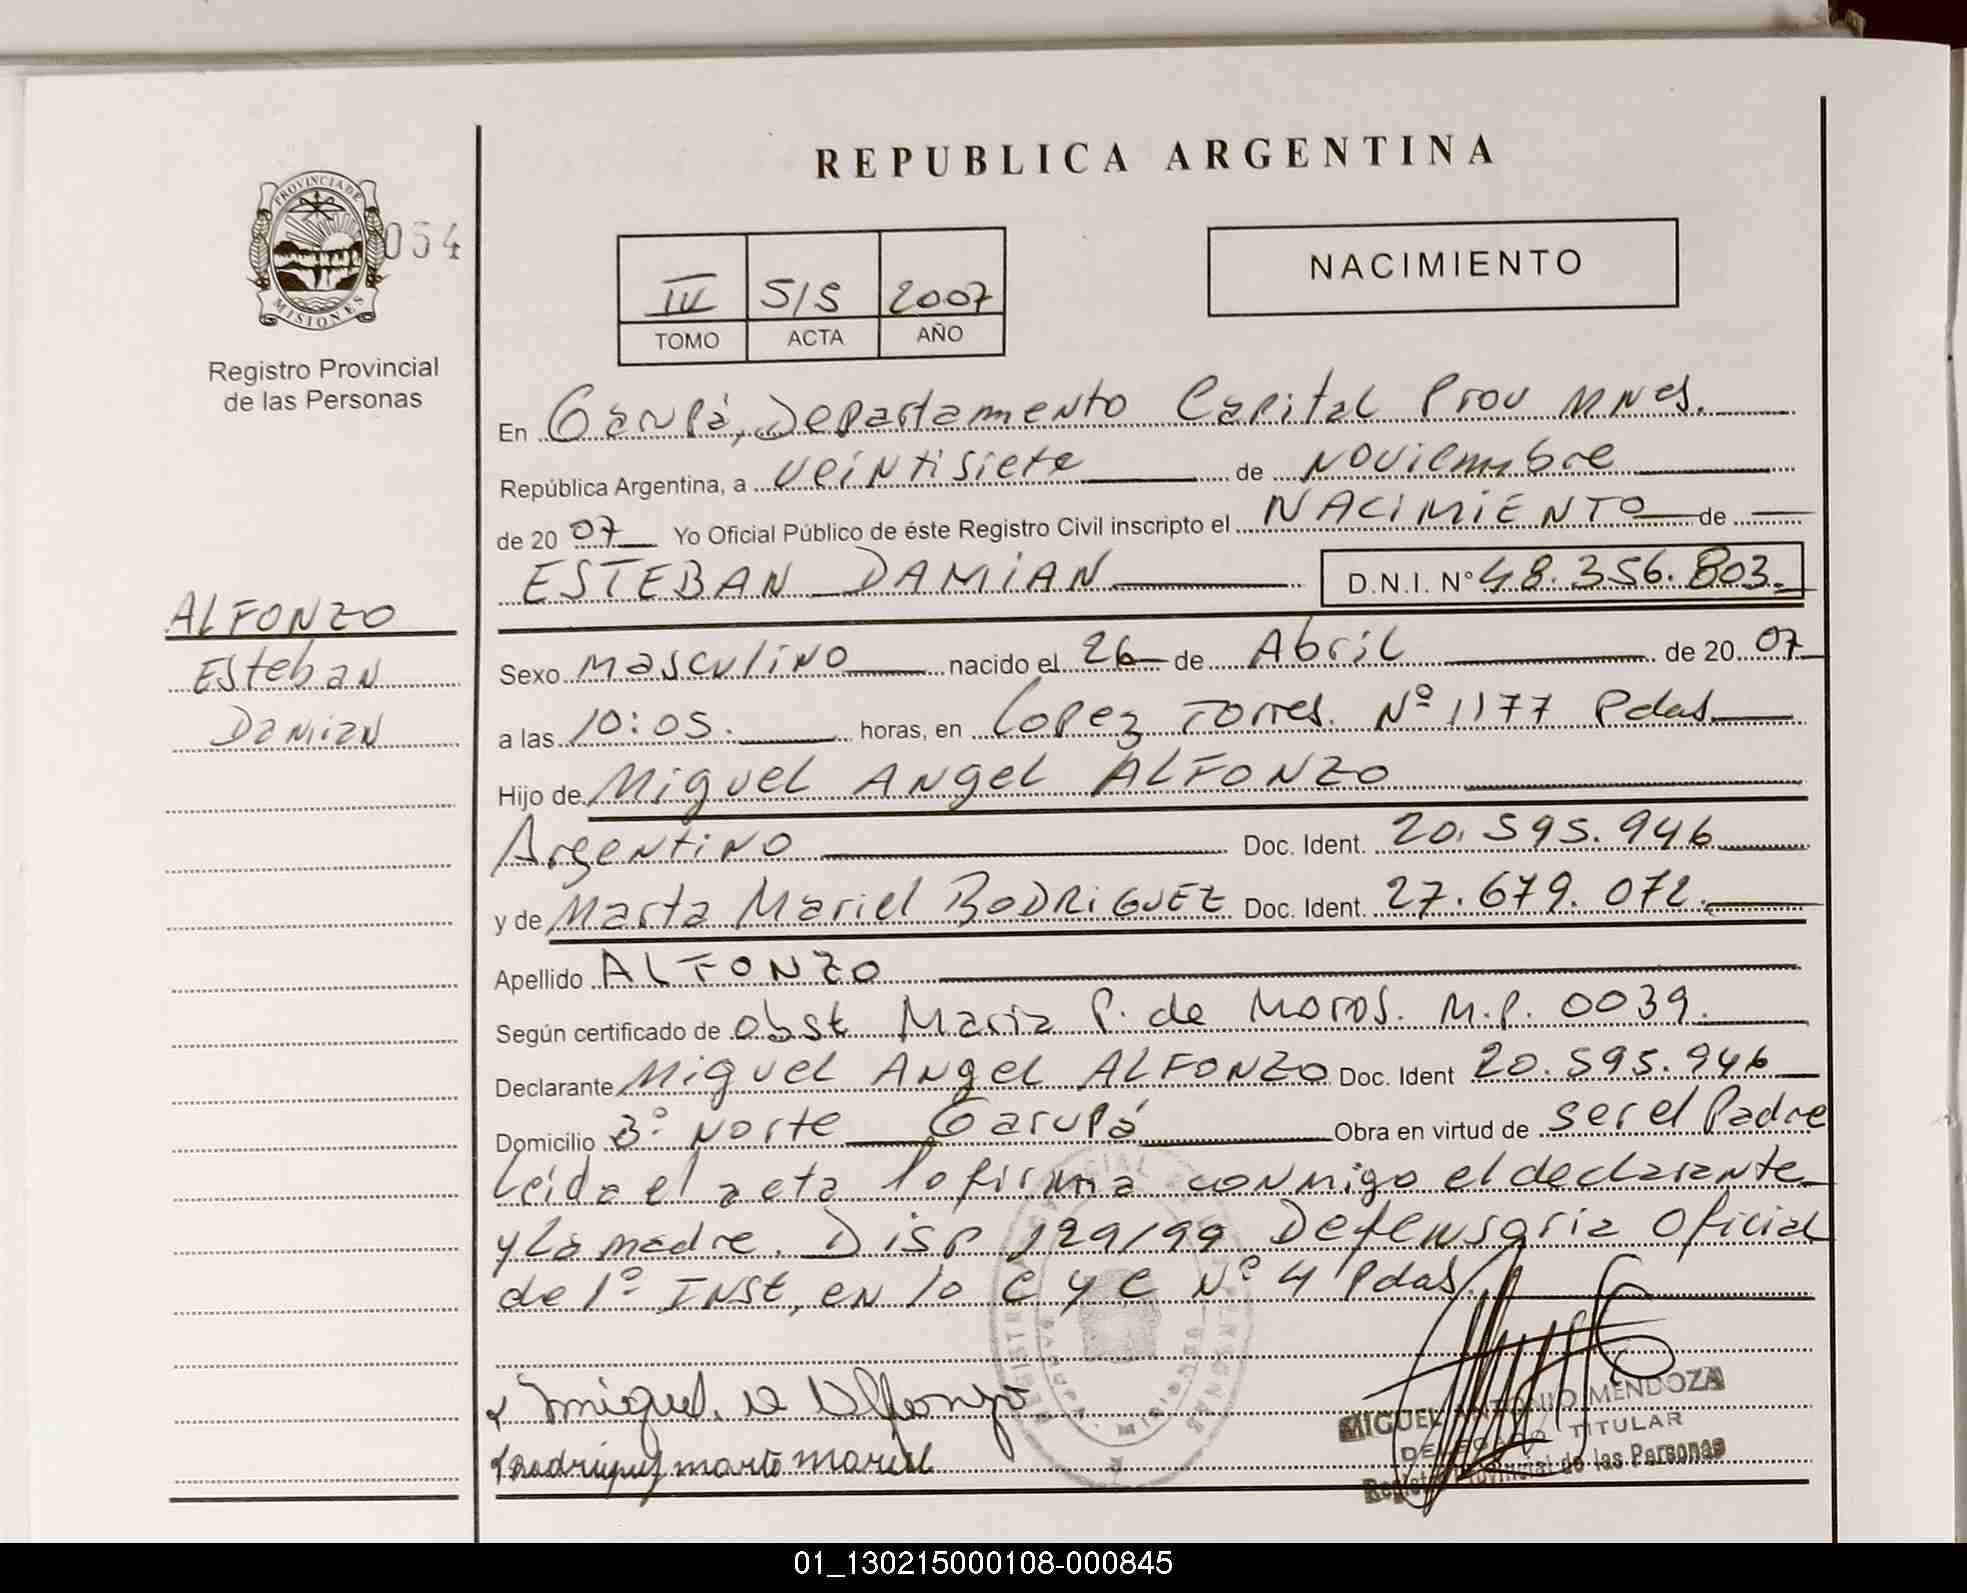 REPUBLICA ARGENTINA
PROVINCIA DE
MISIONES
054
Registro Provincial
de las Personas
NACIMIENTO
IV 515 2007
TOMO ACTA AÑO
En Garupá, Departamento Capital Prov Mnes.
República Argentina, a veintisiete de Noviembre
de 2007 Yo Oficial Público de éste Registro Civil inscripto el NACIMIENTO de
ESTEBAN DAMIAN D.N.I. N° 48.356.803.
ALFONZO
Esteban
Damian
Sexo masculino nacido el 26 de Abril de 2007
a las 10:05. horas, en Lopez Torres. Nº 1177 Pdas.
Hijo de Miguel Angel ALFONZO
Argentino Doc. Ident. 20.595.946
y de Marta Mariel RODRIGUEZ Doc. Ident. 27.679.072.
Apellido ALFONZO
Según certificado de obst Maria P. de Moros. M.P. 0039.
Declarante Miguel Angel ALFONZO Doc. Ident 20.595.946
Domicilio Bº Norte Garupá Obra en virtud de ser el Padre
Leida el acta lo firma conmigo el declarante
y la madre. Disp 129/99 Defensoria Oficial
de 1º INST, en lo C y C Nº 4 Pdas/.
Miguel. A Alfonzo
Rodriguez marta mariel
MIGUEL ANTONIO MENDOZA
DELEGADO TITULAR
Registro Provincial de las Personas
01_130215000108-000845